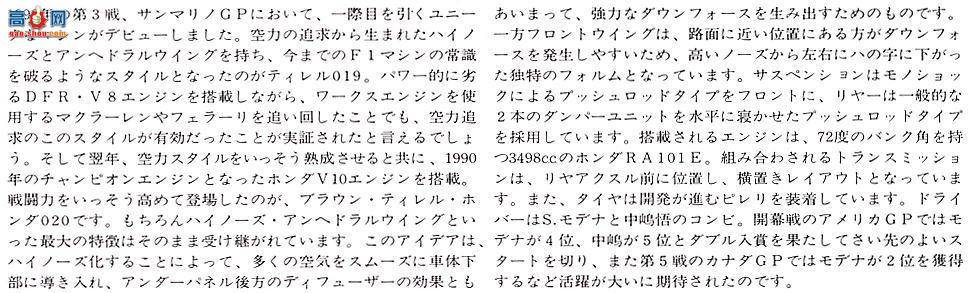 高网
gao-shou.com
年の第３戦、サンマリノＧＰにおいて、一際目を引くユニー
ンがデビューしました。空力の追求から生まれたハイノ
ーズとアンヘドラルウイングを持ち、今までのＦ１マシンの常識
を破るようなスタイルとなったのがティレル019。パワー的に劣
るＤＦＲ・Ｖ８エンジンを搭載しながら、ワークスエンジンを使
用するマクラーレンやフェラーリを追い回したことでも、空力追
求のこのスタイルが有効だったことが実証されたと言えるでしょ
う。そして翌年、空力スタイルをいっそう熟成させると共に、1990
年のチャンピオンエンジンとなったホンダＶ10エンジンを搭載。
戦闘力をいっそう高めて登場したのが、ブラウン・ティレル・ホ
ンダ020です。もちろんハイノーズ・アンヘドラルウイングとい
った最大の特徴はそのまま受け継がれています。このアイデアは、
ハイノーズ化することによって、多くの空気をスムーズに車体下
部に導き入れ、アンダーパネル後方のディフューザーの効果とも
あいまって、強力なダウンフォースを生み出すためのものです。
一方フロントウイングは、路面に近い位置にある方がダウンフォ
ースを発生しやすいため、高いノーズから左右にハの字に下がっ
た独特のフォルムとなっています。サスペンションはモノショッ
クによるプッシュロッドタイプをフロントに、リヤーは一般的な
２本のダンパーユニットを水平に寝かせたプッシュロッドタイプ
を採用しています。搭載されるエンジンは、72度のバンク角を持
つ3498ccのホンダＲＡ101Ｅ。組み合わされるトランスミッショ
ンは、リヤアクスル前に位置し、横置きレイアウトとなっていま
す。また、タイヤは開発が進むピレリを装着しています。ドライ
バーはS.モデナと中嶋悟のコンビ。開幕戦のアメリカＧＰではモ
デナが４位、中嶋が５位とダブル入賞を果たしてさい先のよいス
タートを切り、また第５戦のカナダＧＰではモデナが２位を獲得
するなど活躍が大いに期待されたのです。